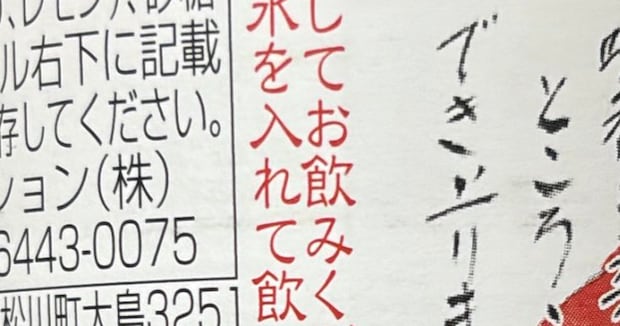 、レモン、砂糖
ル右下に記載
存してください。
ション(株)
6443-0075
松川町大島3251
してお飲みく
氷を入れて飲
ところ
でき立りま